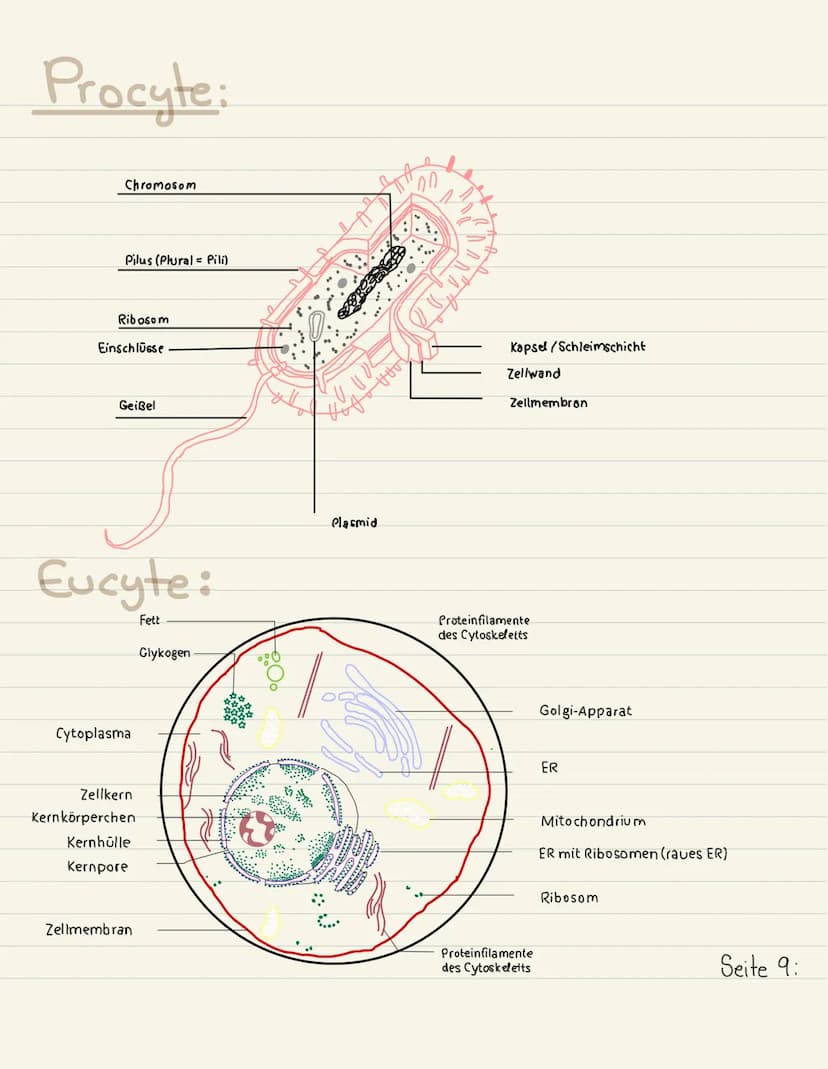 Procyte:
Chromosom
Pilus (Plural = Pili)
Ribosom
Einschlüsse
Geißel
Kapsel / Schleimschicht
Zellwand
Zellmembran
Plasmid
Eucyte:
Fett
Glykogen
Cytoplasma
Zellkern
Kernkörperchen
Kernhülle
Kernpore
Zellmembran
Proteinfilamente
des Cytoskeletts
Golgi-Apparat
ER
Mitochondrium
ER mit Ribosomen (raues ER)
Ribosom
Proteinfilamente
des Cytoskeletts
Seite 9: